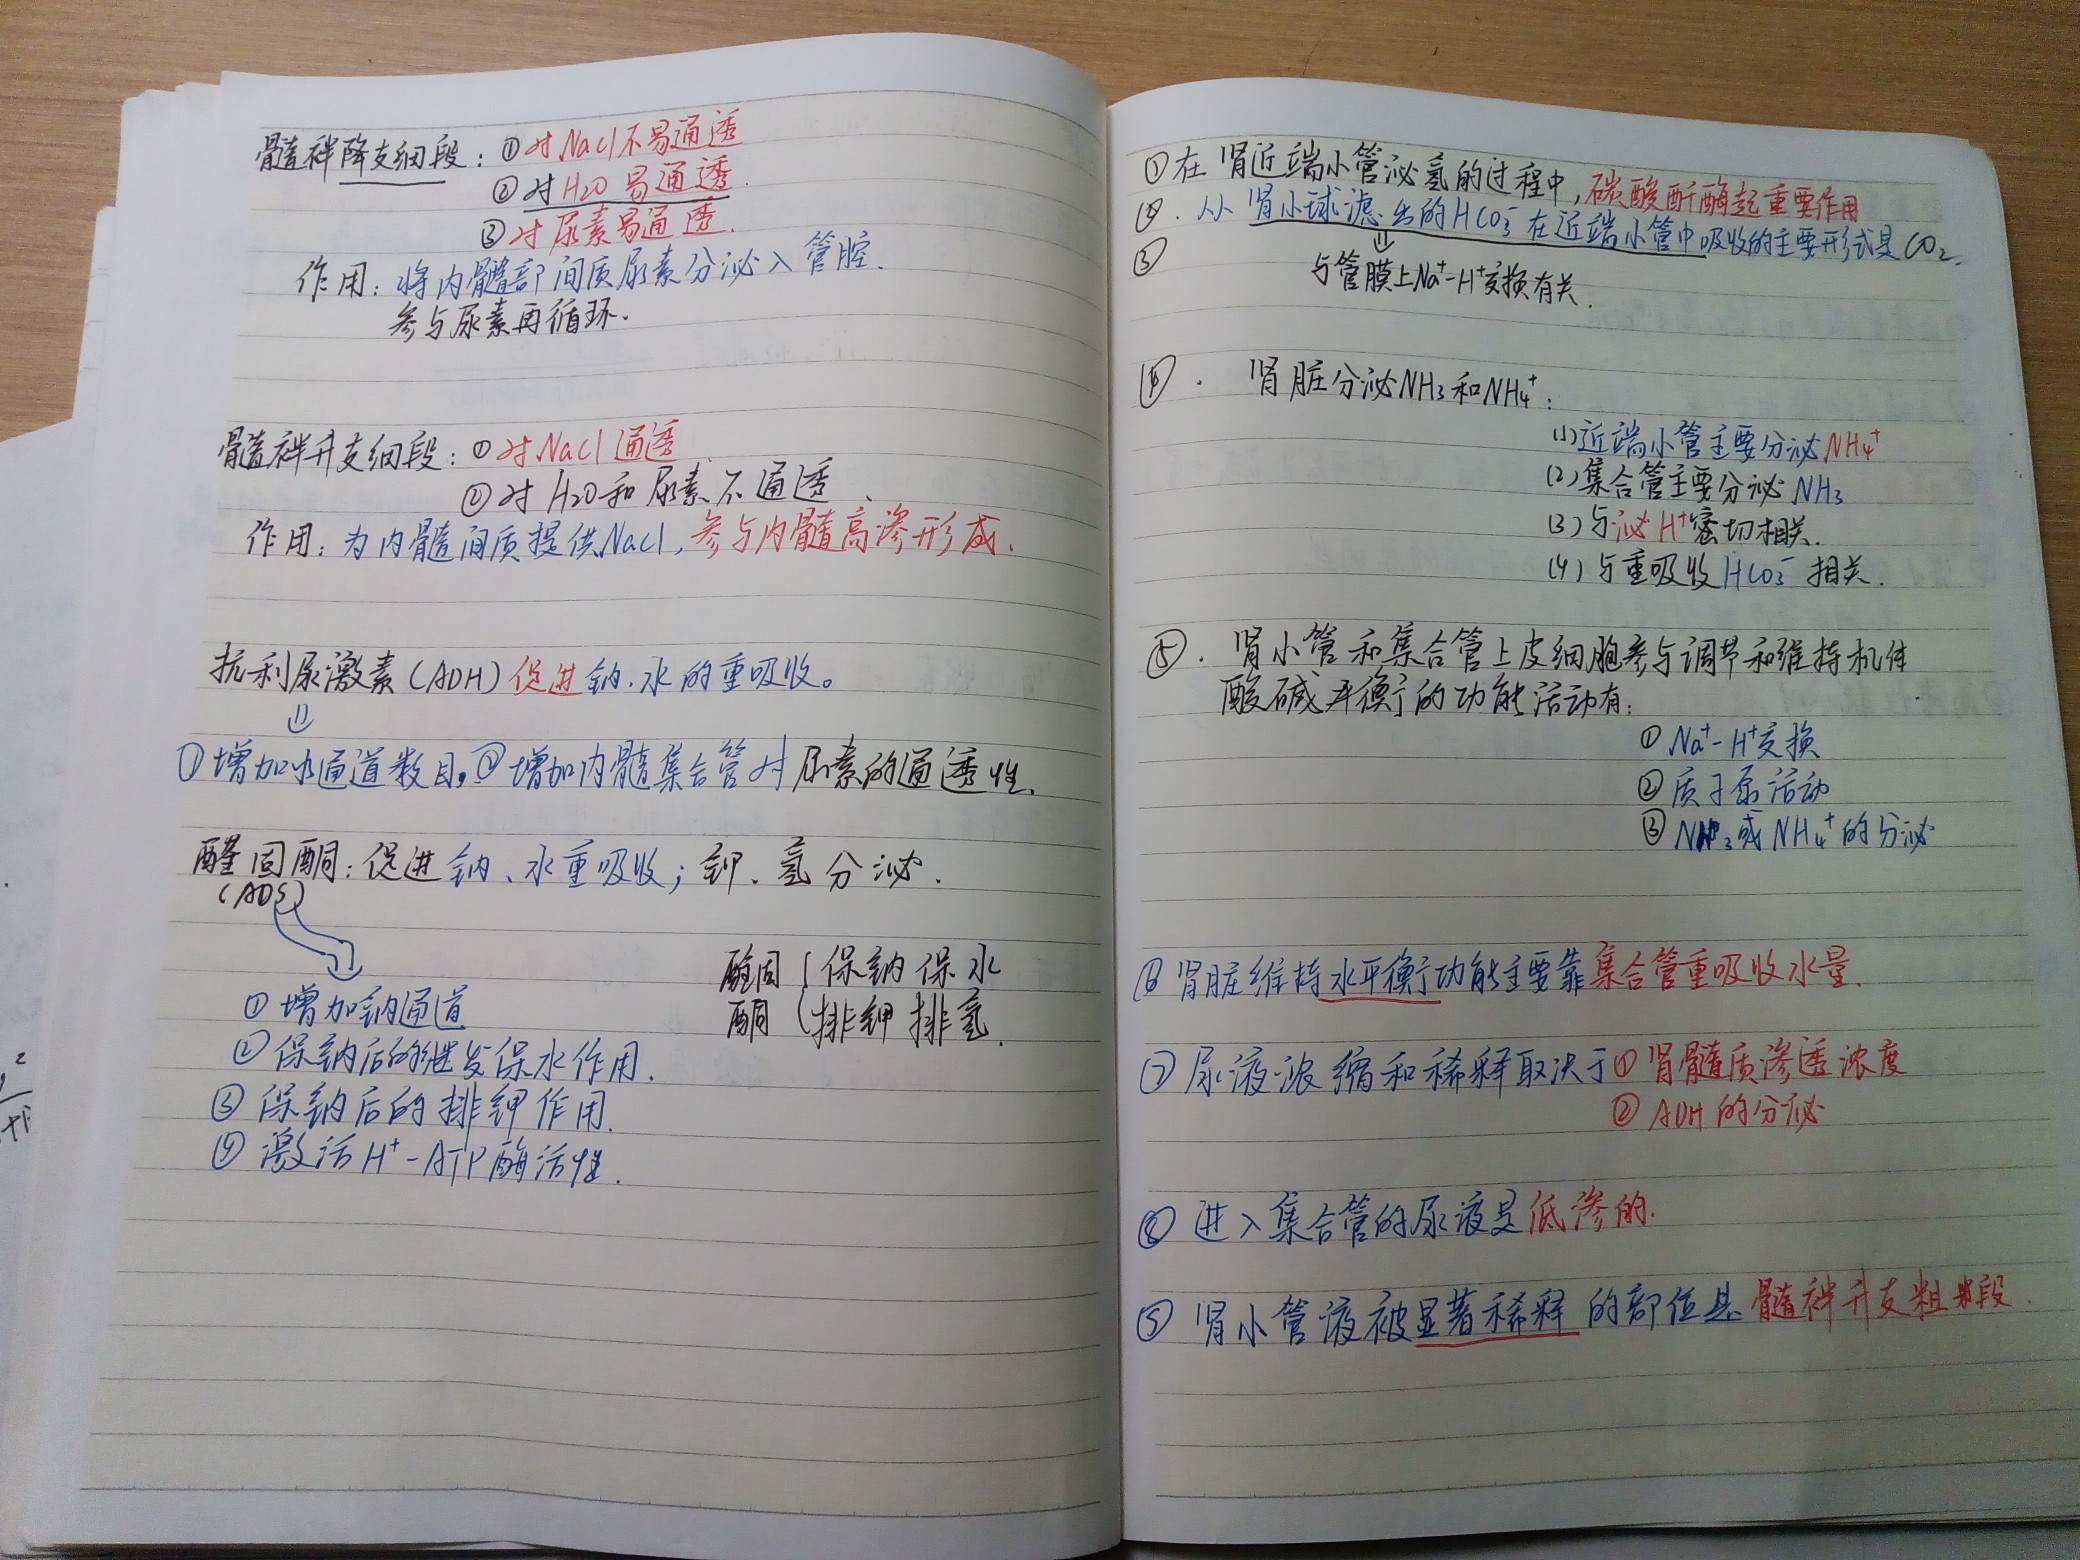 髓袢降支细段：①对NaCl不易通透
②对H2O易通透.
③对尿素易通透.
作用：将内髓部间质尿素分泌入管腔.
参与尿素再循环.
髓袢升支细段：①对NaCl通透.
②对H2O和尿素不通透、
作用：为内髓间质提供NaCl，参与内髓高渗形成.
抗利尿激素（ADH）促进钠.水的重吸收。
⇓
①增加水通道数目,②增加内髓集合管对尿素的通透性.
醛固酮：促进钠、水重吸收；钾、氢分泌.
（ADS）
①增加钠通道
②保钠后的继发保水作用.
③保钠后的排钾作用.
④激活H⁺-ATP酶活性.
醛固{保钠保水
酮{排钾排氢.
①在肾近端小管泌氢的过程中，碳酸酐酶起重要作用
②.从肾小球滤出的HCO3⁻在近端小管中吸收的主要形式是CO2.
⇓
③ 与管膜上Na⁺-H⁺交换有关.
④. 肾脏分泌NH3和NH4⁺：
(1)近端小管主要分泌NH4⁺
(2)集合管主要分泌NH3
(3)与泌H⁺密切相关.
(4)与重吸收HCO3⁻相关.
⑤.肾小管和集合管上皮细胞参与调节和维持机体
酸碱平衡的功能活动有：
①Na⁺-H⁺交换
②质子泵活动
③NH3或NH4⁺的分泌
⑥肾脏维持水平衡功能主要靠集合管重吸收水量.
⑦尿液浓缩和稀释取决于①肾髓质渗透浓度
②ADH的分泌
⑧进入集合管的尿液是低渗的.
⑨肾小管液被显著稀释的部位是髓袢升支粗段.